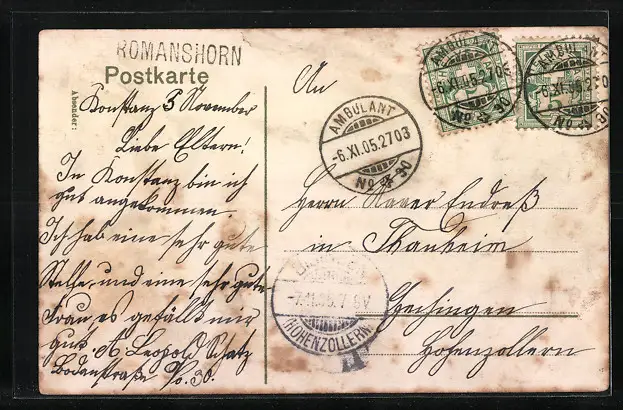 ROMANSHORN
Postkarte
Absender:
Konstanz 5 November
Liebe Eltern!
In Konstanz bin ich
gut angekommen.
Ich hab eine sehr gute
Stelle, und eine sehr gute
Frau, es gefällt mir
gut. A. Leopold Schatz
Bodanstraße No. 30.
An
Herrn Xaver Endreß
in Thanheim
Geisingen
Hohenzollern
AMBULANT
-6.XI.05.2703
No 4 30
AMBULANT
-6.XI.05.2703
No 4 30
AMBULANT
-6.XI.05.
HOHENZOLLERN